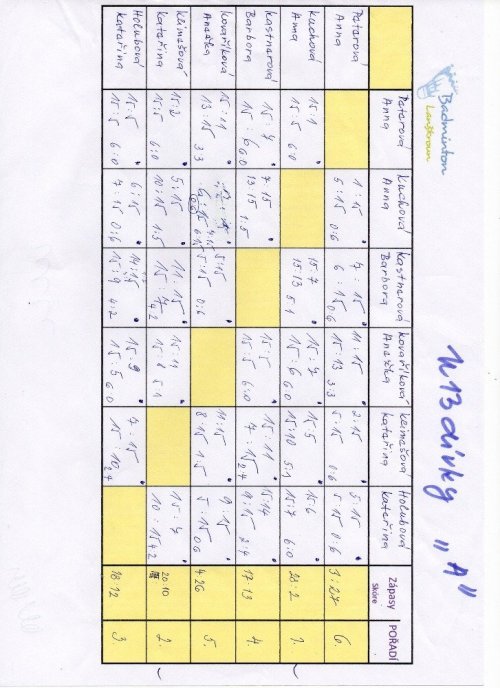 Badminton
Lanškroun
U13 dívky "A"
Paterová Anna
Kuchová Anna
Kastnerová Barbora
Kovaříková Anežka
Klimešová Kateřina
Holubová Kateřina
Zápasy
Skóre
POŘADÍ
Paterová 1:15 7:15 11:15 2:15 5:15
Anna 5:15 0:6 6:15 0:6 15:13 3:3 5:15 0:6 5:15 0:6 3:27 6.
Kuchová 15:1 15:7 15:7 15:5 15:6
Anna 15:5 6:0 15:13 5:1 15:6 6:0 15:10 5:1 15:7 6:0 28:2 1.
Kastnerová 15:7 7:15 15:5 15:11 15:14
Barbora 15:6 6:0 13:15 1:5 15:5 6:0 7:15 2:4 9:15 2:4 17:13 4.
Kovaříková 15:11 5:15 11:15 9:15
Anežka 13:15 3:3 6:15 5:15 0:6 8:15 1:5 5:15 0:6 4:26 5.
Klimešová 15:2 5:15 11:15 15:11 15:7
Kateřina 15:5 6:0 10:15 1:5 15:7 4:2 15:8 5:1 10:15 4:2 20:10 2.
Holubová 15:5 6:15 14:15 15:9 7:15
Kateřina 15:5 6:0 7:15 0:6 15:9 4:2 15:5 6:0 15:10 2:4 18:12 3.